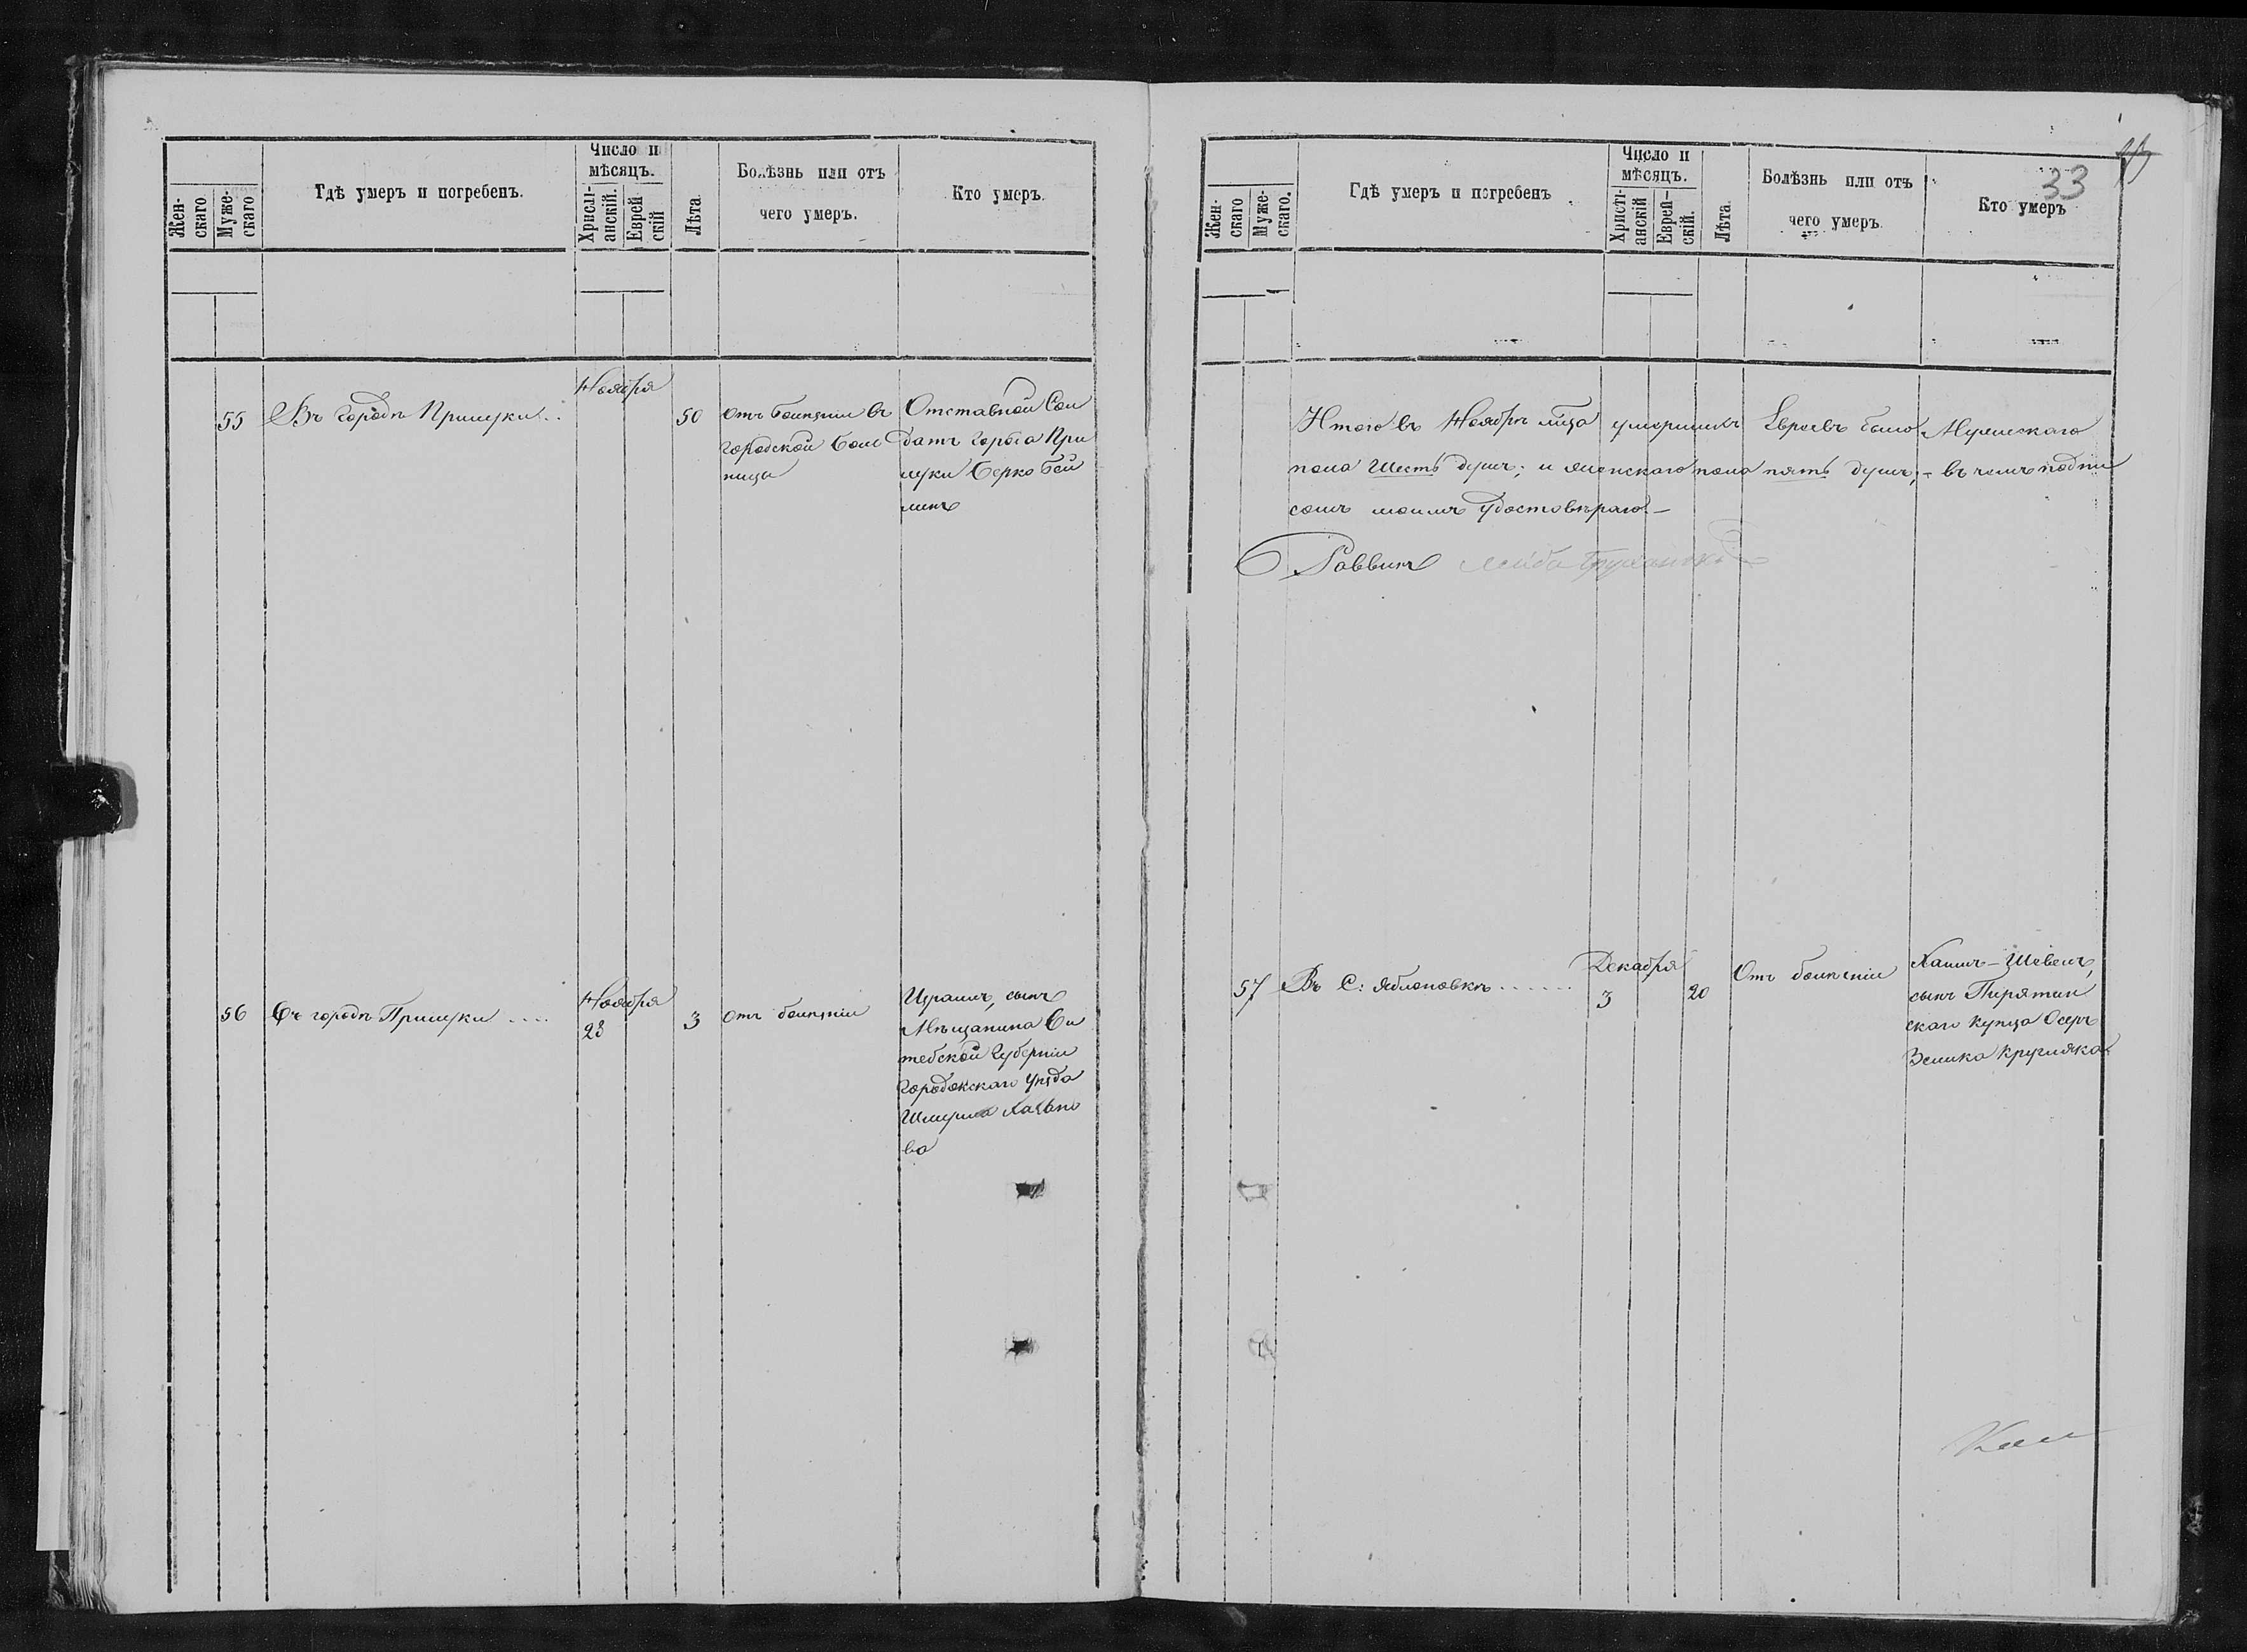 Жен-
скаго.
Муже-
скаго
Гдѣ умеръ и погребенъ.
Число и
мѣсяцъ.
Христі-
анскій.
Еврей
скій
Лѣта.
Болѣзнь или отъ
чего умеръ.
Кто умеръ.
Ноября
55 Въ городѣ Прилуки.. 50
отъ болѣзни въ
городской боль
ницы
Отставной Сол
датъ города При
луки Берко Бей
линъ
56 Въ городѣ Прилуки ....
Ноября
28
3
отъ болѣзни
Израиль, сынъ
Мѣщанина Ви
тебской Губерніи
Городокскаго уѣзда
Шмуила
ва
33
Жен-
скаго
Муже-
скаго.
Гдѣ умеръ и погребенъ
Число и
мѣсяцъ.
Христі-
анскій
Еврей-
скій.
Лѣта.
Болѣзнь или отъ
чего умеръ.
Кто умеръ
Итого въ Ноябрѣ м̃ца умершихъ Евреевъ было Мужескаго
пола Шесть душъ; и женскаго пола пять душъ; - въ чемъ подпи
сомъ моимъ удостовѣряю. -
Раввинъ Лейба
57 Въ С: Яблоновкѣ ......
Декабря
3
20
Отъ болѣзни
Хаимъ-Шевелъ,
сынъ Пирятин
скаго купца Осеръ
Зелика Кругляка